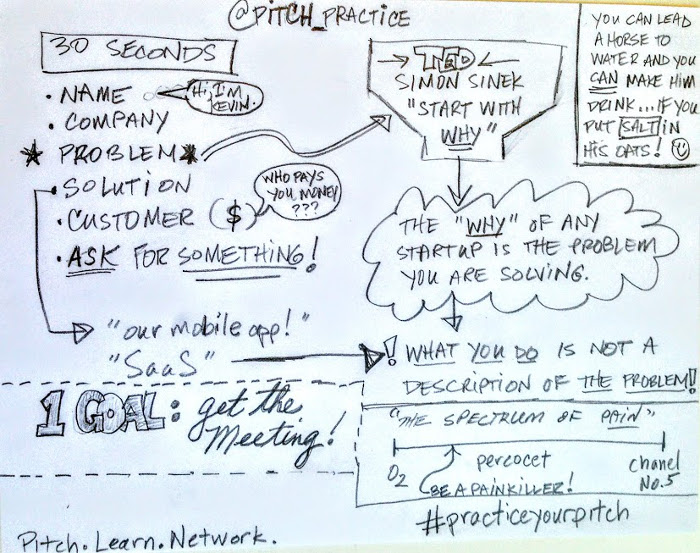 @PITCH_PRACTICE
30 SECONDS
• NAME
Hi, I'M
KEVIN.
• COMPANY
★ PROBLEM ★
• SOLUTION
• CUSTOMER ($)
WHO PAYS
YOU MONEY
???
• ASK FOR SOMETHING!
"our mobile app!"
"SaaS"
1 GOAL: get the
Meeting!
Pitch. Learn. Network.
TED
SIMON SINEK
"START WITH
WHY"
THE "WHY" OF ANY
STARTUP IS THE PROBLEM
YOU ARE SOLVING.
! WHAT YOU DO IS NOT A
DESCRIPTION OF THE PROBLEM!!
"THE SPECTRUM OF PAIN"
O2
percocet
chanel
No.5
BE A PAINKILLER!
#practiceyourpitch
YOU CAN LEAD
A HORSE TO
WATER AND YOU
CAN MAKE HIM
DRINK... IF YOU
PUT SALT IN
HIS OATS!